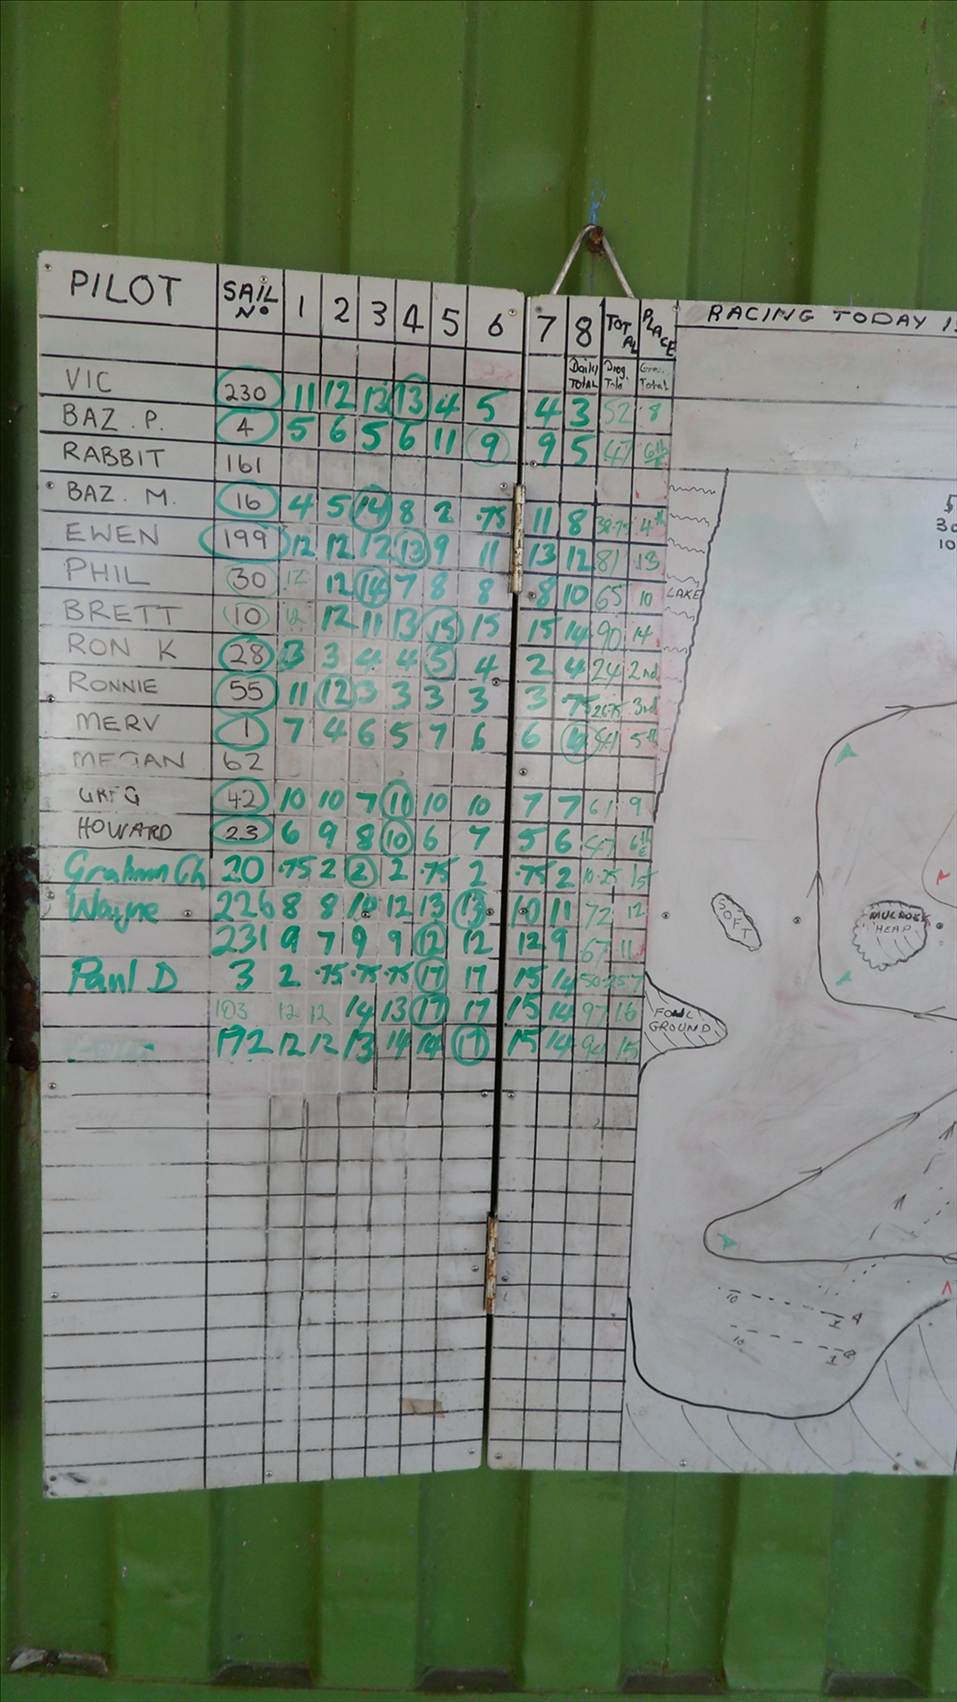 PILOT SAIL Nº 1 2 3 4 5 6 7 8 TOTAL PLACE
RACING TODAY
Daily TOTAL Prog. Total
VIC 230 11 12 13 13 4 5 4 3 52 8
BAZ. P. 4 5 6 5 6 11 9 9 5 47 6th
RABBIT 161
BAZ. M. 16 4 5 14 8 2 .75 11 8 4th
EWEN 199 12 12 12 13 9 11 13 12 81 13
PHIL 30 12 12 14 7 8 8 8 10 65 10
LAKE
BRETT 10 12 12 11 13 15 15 15 14 90 14
RON K 28 3 3 4 4 5 4 2 4 24 2nd
RONNIE 55 11 12 3 3 3 3 3 .75 26.75 3rd
MERV 1 7 4 6 5 7 6 6 5th
MEGAN 62
GREG 42 10 10 7 11 10 10 7 7 61 9
HOWARD 23 6 9 8 10 6 7 5 6 47 6th
Graham Ch 20 .75 2 2 2 .75 2 .75 2 10.25
Wayne 226 8 8 14 12 13 13 10 11 72 12
SOFT
MULLOCK HEAP
231 9 7 9 9 12 12 12 9 67 11
Paul D 3 2 .75 .75 .75 17 17 15 14 50.25 7
103 12 12 14 13 17 17 15 14 97 16
FOUL GROUND
192 12 12 13 14 14 17 15 14 94 15
30
10
10
10